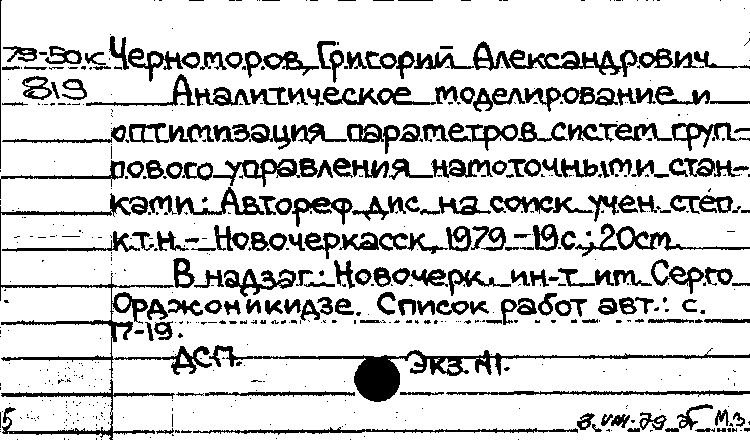 79-50к Черноморов, Григорий Александрович
819 Аналитическое моделирование и
оптимизация параметров систем груп-
пового управления намоточными стан-
ками: Автореф. дис. на соиск. учен. степ.
к.т.н. - Новочеркасск, 1979 - 19 с.; 20 см.
В надзаг.: Новочерк. ин-т им. Серго
Орджоникидзе. Список работ авт.: с.
17-19.
ДСП. Экз. №1.
5 8.VIII.79 М.З.